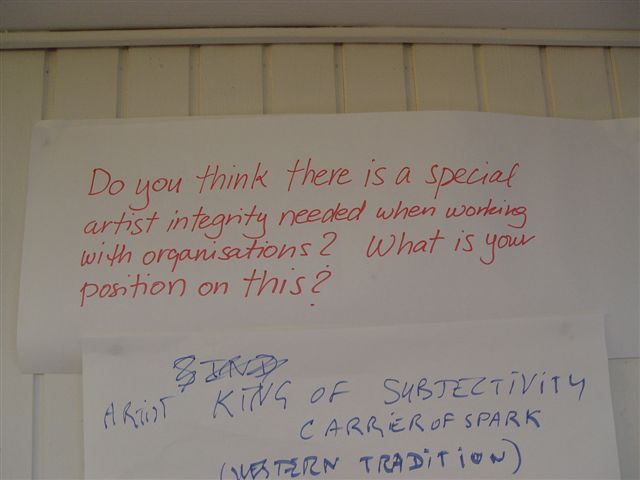 Do you think there is a special
artist integrity needed when working
with organisations? What is your
position on this?
ARTIST KING OF SUBJECTIVITY
CARRIER OF SPARK
(WESTERN TRADITION)